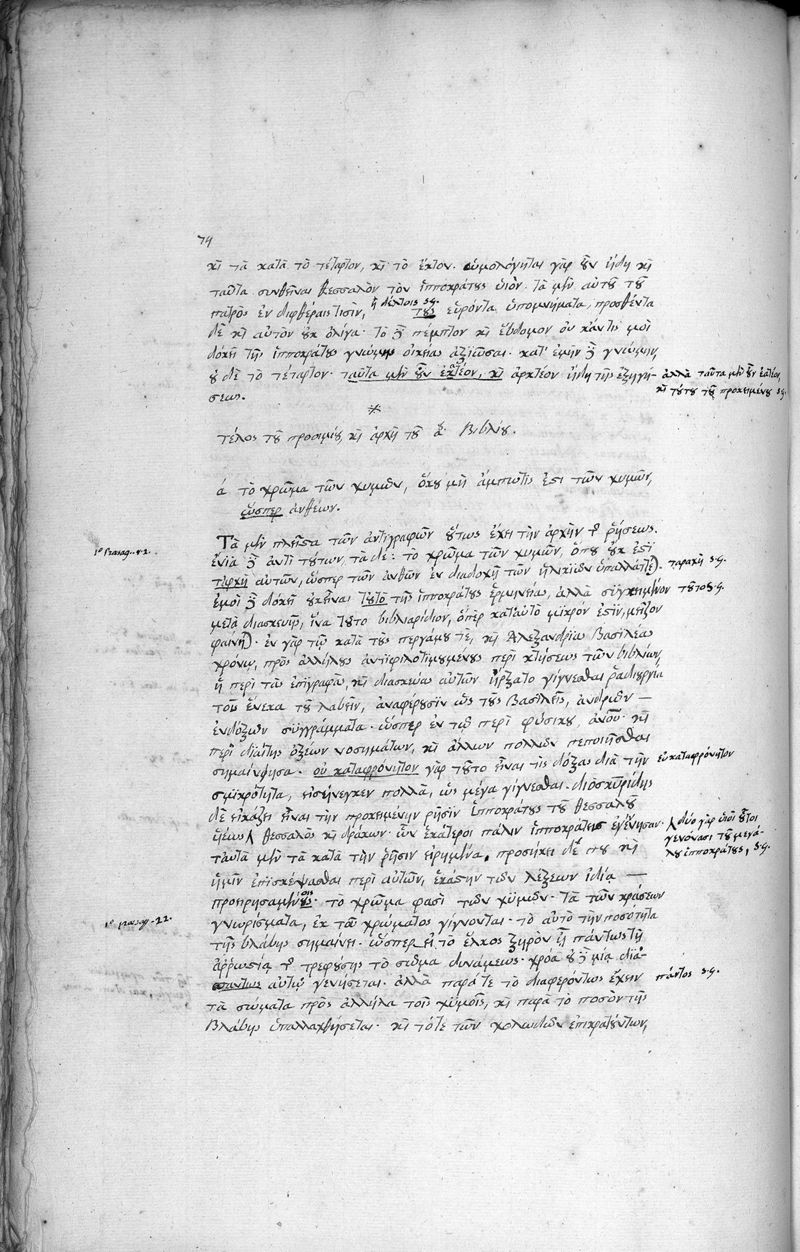 74
καὶ τὰ κατὰ τὸ τέταρτον, καὶ τὸ ἕκτον. ὡμολόγηται γὰρ οὖν ἤδη καὶ
ταῦτα συνθεῖναι θεσσαλὸν τὸν ἱπποκράτους υἱόν. τὰ μὲν αὐτοῦ τοῦ
πατρὸς ἐν διφθέραις τισὶν, ἢ δέλτοις sg. τοὺς εὑρόντα ὑπομνήματα, προσθέντα
δὲ καὶ αὐτὸν οὐκ ὀλίγα. τὸ δὲ πέμπτον καὶ ἕβδομον οὐκ ἄν τις μοὶ
δόκει τῆς ἱπποκράτους γνώμης οἰκεῖα ἀξιῶσαι. κατ' ἐμὴν δὲ γνώμην,
οὐδὲ τὸ τέταρτον. ταῦτα μὲν οὖν ἐατέον, καὶ ἀρκτέον ἤδη τῆς ἐξηγή-
σεως.
ἀλλὰ ταῦτα μὲν οὖν ἐατέον,
καὶ τούτου τοῦ προκειμένου sg.
*
τέλος τοῦ προοιμίου, καὶ ἀρχὴ τοῦ α. Βιβλίου.
ά τὸ χρῶμα τῶν χυμῶν, ὅκου μὴ ἄμπωτίς ἐστι τῶν χυμῶν,
ὥσπερ ἀνθέων.
Τὰ μὲν πλεῖστα τῶν ἀντιγράφων οὕτως ἔχει τὴν ἀρχὴν τῆς ῥήσεως.
ἔνια δὲ ἀντὶ τούτων, τὰ δέ: τὸ χρῶμα τῶν χυμῶν, ὅπου οὐκ ἔστι
ταραχὴ αὐτῶν, ὥσπερ τῶν ἀνθῶν ἐν διαδοχῇ τῶν ἡλικιῶν ὑπαλλάττεται. ταραχὴ sg.
ἐμοὶ δὲ δοκεῖ οὐκ εἶναι τοῦτο τῆς ἱπποκράτους ἑρμηνείας, ἀλλὰ συγκείμενον τοῦτο sg.
μετὰ διασκευῆς, ἵνα τοῦτο βιβλιαρίδιον, ὅπερ κατ' αὐτὸ μικρόν ἐστιν, μεῖζον
φαίνηται. ἐν γὰρ τῷ κατὰ τοὺς περγάμου τὲ, καὶ Ἀλεξανδρείας βασιλέας
χρόνῳ, πρὸς ἀλλήλους ἀντιφιλοτιμουμένους περὶ κτήσεως τῶν βιβλίων,
ἡ περὶ τὰς ἐπιγραφὰς, καὶ διασκευὰς αὐτῶν ἤρξατο γίγνεσθαι ῥᾳδιουργία
τοῖς ἕνεκα τοῦ λαβεῖν, ἀναφέρουσιν ὡς τοὺς βασιλεῖς, ἀνδρῶν —
ἐνδόξων συγγράμματα. ὥσπερ ἐν τῷ περὶ φύσιος ἀνου. καὶ
περὶ διαίτης ὀξέων νοσημάτων, καὶ ἄλλων πολλῶν πεποιῆσθαι
σημαίνουσα. οὐ καταφρόνητον γὰρ τοῦτο εἶναι τῆς δόξας διὰ τὴν εὐκαταφρόνητον
σμικρότητα, εἰσήνεγκεν πολλὰ, ὡς μέγα γίγνεσθαι. διοσκουρίδης
δὲ εἰκάζει εἶναι τὴν προκειμένην ῥῆσιν ἱπποκράτους τοῦ θεσσαλοῦ
υἱέως, θεσσαλὸς καὶ δράκων. ὧν ἑκάτεροι πάλιν ἱπποκράτεις ἐγέννησαν.
δύο γὰρ υἱοὶ οὗτοι
γεγόνασι τοῦ μεγά-
λου ἱπποκράτους, sg.
ταῦτα μὲν τὰ κατὰ τὴν ῥῆσιν εἰρημένα. προσήκει δέ που καὶ
ἡμῖν ἐπισκέψασθαι περὶ αὐτῶν, ἑκάστην τῶν λέξεων ἰδίᾳ —
προχειρησαμένοις. τὸ χρῶμα φασὶ τῶν χυμῶν. τὰ τῶν κράσεων
γνωρίσματα, ἐκ τοῦ χρώματος γίγνονται. τὸ αὐτὸ τὴν ποσότητα
τῆς βλάβης σημαίνει. ὥσπερ εἰ τὸ ἕλκος ξηρὸν ᾖ πάντως τῇ
ἀῤῥωστίᾳ τῆς τρεφούσης τὸ σῶμα δυνάμεως. χρόα οὐ δὲ μία διὰ
παντὸς αὐτῷ γενήσεται. ἀλλὰ παρά τε τὸ διαφερόντως ἔχειν πάντως sg.
τὰ σώματα πρὸς ἄλληλα τοῖς χυμοῖς, καὶ παρὰ τὸ ποσὸν τῆς
βλάβης ὑπαλλαχθήσεται. καὶ τότε τῶν χολωδῶν ἐπικρατούντων,